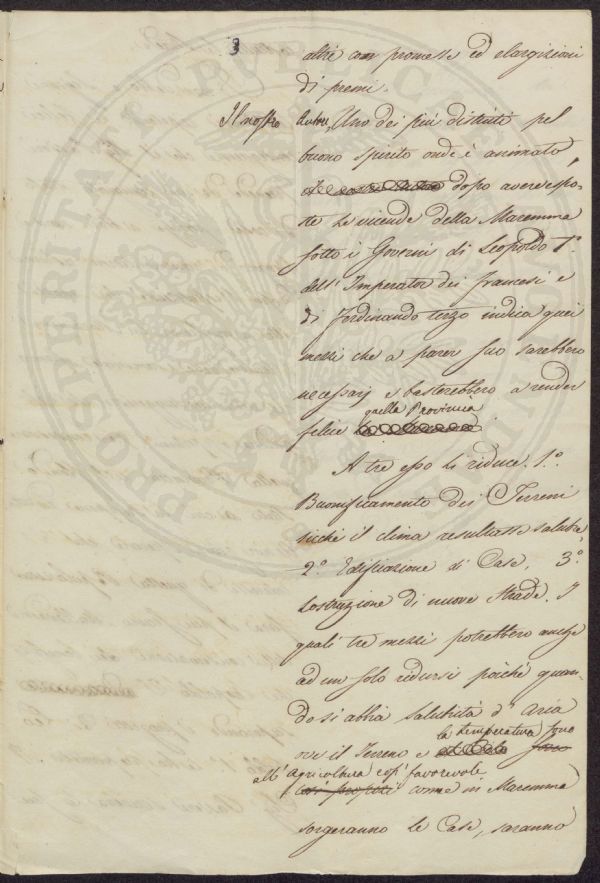 3
altri con promesse ed elargizioni
di premi.
Il nostro Autore, Uno dei più distinti pel
buono spirito onde è animato,
Il nostro Autore dopo aver espo-
sto le vicende della Maremma
sotto i Governi di Leopoldo 1.º
dell' Imperator dei francesi e
di Ferdinando terzo indica quei
mezzi che a parer suo sarebbero
necessarj e basterebbero a render
quella Provincia
felice
A tre esso li riduce. 1.º
Buonificamento dei Terreni
sicchè il clima resultasse salubre,
2.º Edificazione di Case, 3.º
Costruzione di nuove strade. I
quali tre mezzi potrebbero anche
ad un solo ridursi poichè quan-
do si abbia salubrità d' Aria
la temperatura sono
ove il Terreno e il Cielo sono
all' Agricoltura così favorevole
così propizi come in Maremma
sorgeranno le Case, saranno